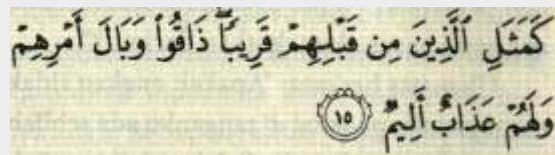 كَمَثَلِ ٱلَّذِينَ مِن قَبْلِهِمْ قَرِيبًا ۖ ذَاقُوا۟ وَبَالَ أَمْرِهِمْ
وَلَهُمْ عَذَابٌ أَلِيمٌ ١٥